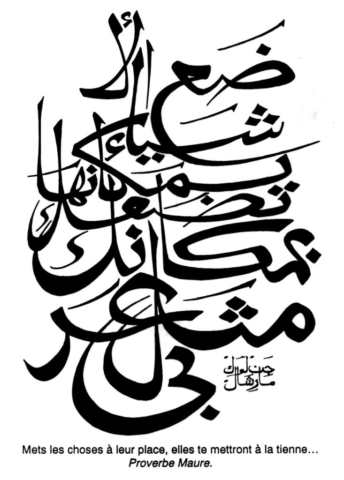 ضع الأ
شياء
بمكانها
تضعك
بمكانك
مثل عر
بي
Mets les choses à leur place, elles te mettront à la tienne...
Proverbe Maure.